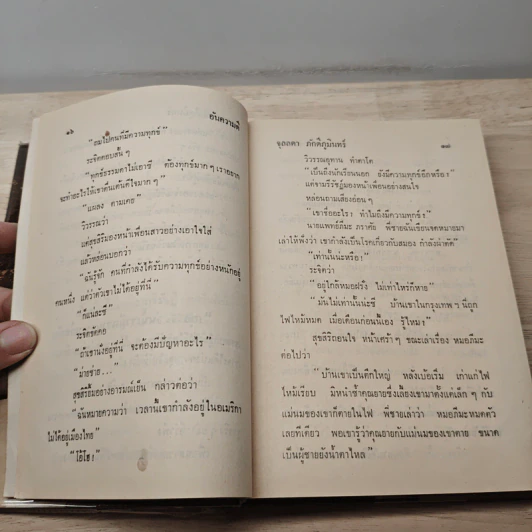 ๑๖
อันความดี
"ถมไปคนที่มีความทุกข์"
ระจิตตอบสั้น ๆ
"ทุกข์ธรรมดาไม่เอาซี ต้องทุกข์มาก ๆ เราอยาก
จะทำอะไรให้เขาตื่นเต้นดีใจมาก ๆ"
วิวรรณว่า
แต่สุขสิริมองหน้าเพื่อนสาวอย่างเอาใจใส่
แล้วหล่อนบอกว่า
"ฉันรู้จัก คนที่กำลังได้รับความทุกข์อย่างหนักอยู่
คนหนึ่ง แต่ว่าตัวเขาไม่ได้อยู่ที่นี่"
"ก็แน่ละซี"
ระจิตขัดคอ
"ถ้าเขานั่งอยู่ที่นี่ จะต้องมีปัญหาอะไร"
"ม่ายช่าย..."
สุขสิริยิ้มอย่างอารมณ์เย็น กล่าวต่อว่า
"ฉันหมายความว่า เวลานี้เขากำลังอยู่ในอเมริกา
ไม่ได้อยู่เมืองไทย"
"โอ้โฮ!
จุลลดา ภักดีภูมินทร์
๑๗
วิวรรณอุทาน ทำตาโต
"เป็นถึงนักเรียนนอก ยังมีความทุกข์อีกหรือ!"
หล่อนถามเสียงอ่อน ๆ
"เขาชื่ออะไรๆ ทำไมถึงมีความทุกข์!"
นายแพทย์ภีมะ ภราดัย พี่ชายฉันเขียนจดหมายมา
เล่าให้พึ่งว่า เขากำลังเป็นโรคเกี่ยวกับสมอง กำลังผ่าตัด"
"เท่านั้นน่ะหรือ!
ระจิตว่า
"อยู่ใกล้หมอฝรั่ง ไม่เท่าไหร่ก็หาย"
"มันไม่เท่านั้นน่ะซี บ้านเขาในกรุงเทพ ๆ นี่ถูก
ไฟไหม้หมด เมื่อเดือนก่อนนี้เอง รู้ไหม!
สุขสิริถอนใจ หน้าเศร้า ๆ ขณะเล่าเรื่อง หมอภีมะ
ต่อไปว่า
"บ้านเขาเป็นตึกใหญ่ หลังเบ้อเริ่ม เก่าแก่ไฟ
ไหม้เรียบ มิหนำซ้ำคุณยายซึ่งเลี้ยงเขามาตั้งแต่เล็ก ๆ กับ
แม่นมของเขาก็ตายในไฟ พี่ชายเล่าว่า หมอภีมะหมดตัว
เลยทีเดียว พอเขารู้ว่าคุณยายกับแม่นมของเขาตาย ขนาด
เป็นผู้ชายยังน้ำตาไหล"